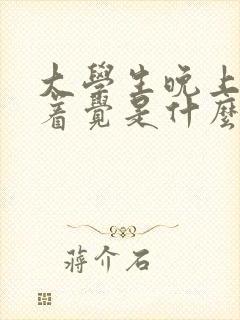 大學生晚上
着覺是什麼
蔣介石